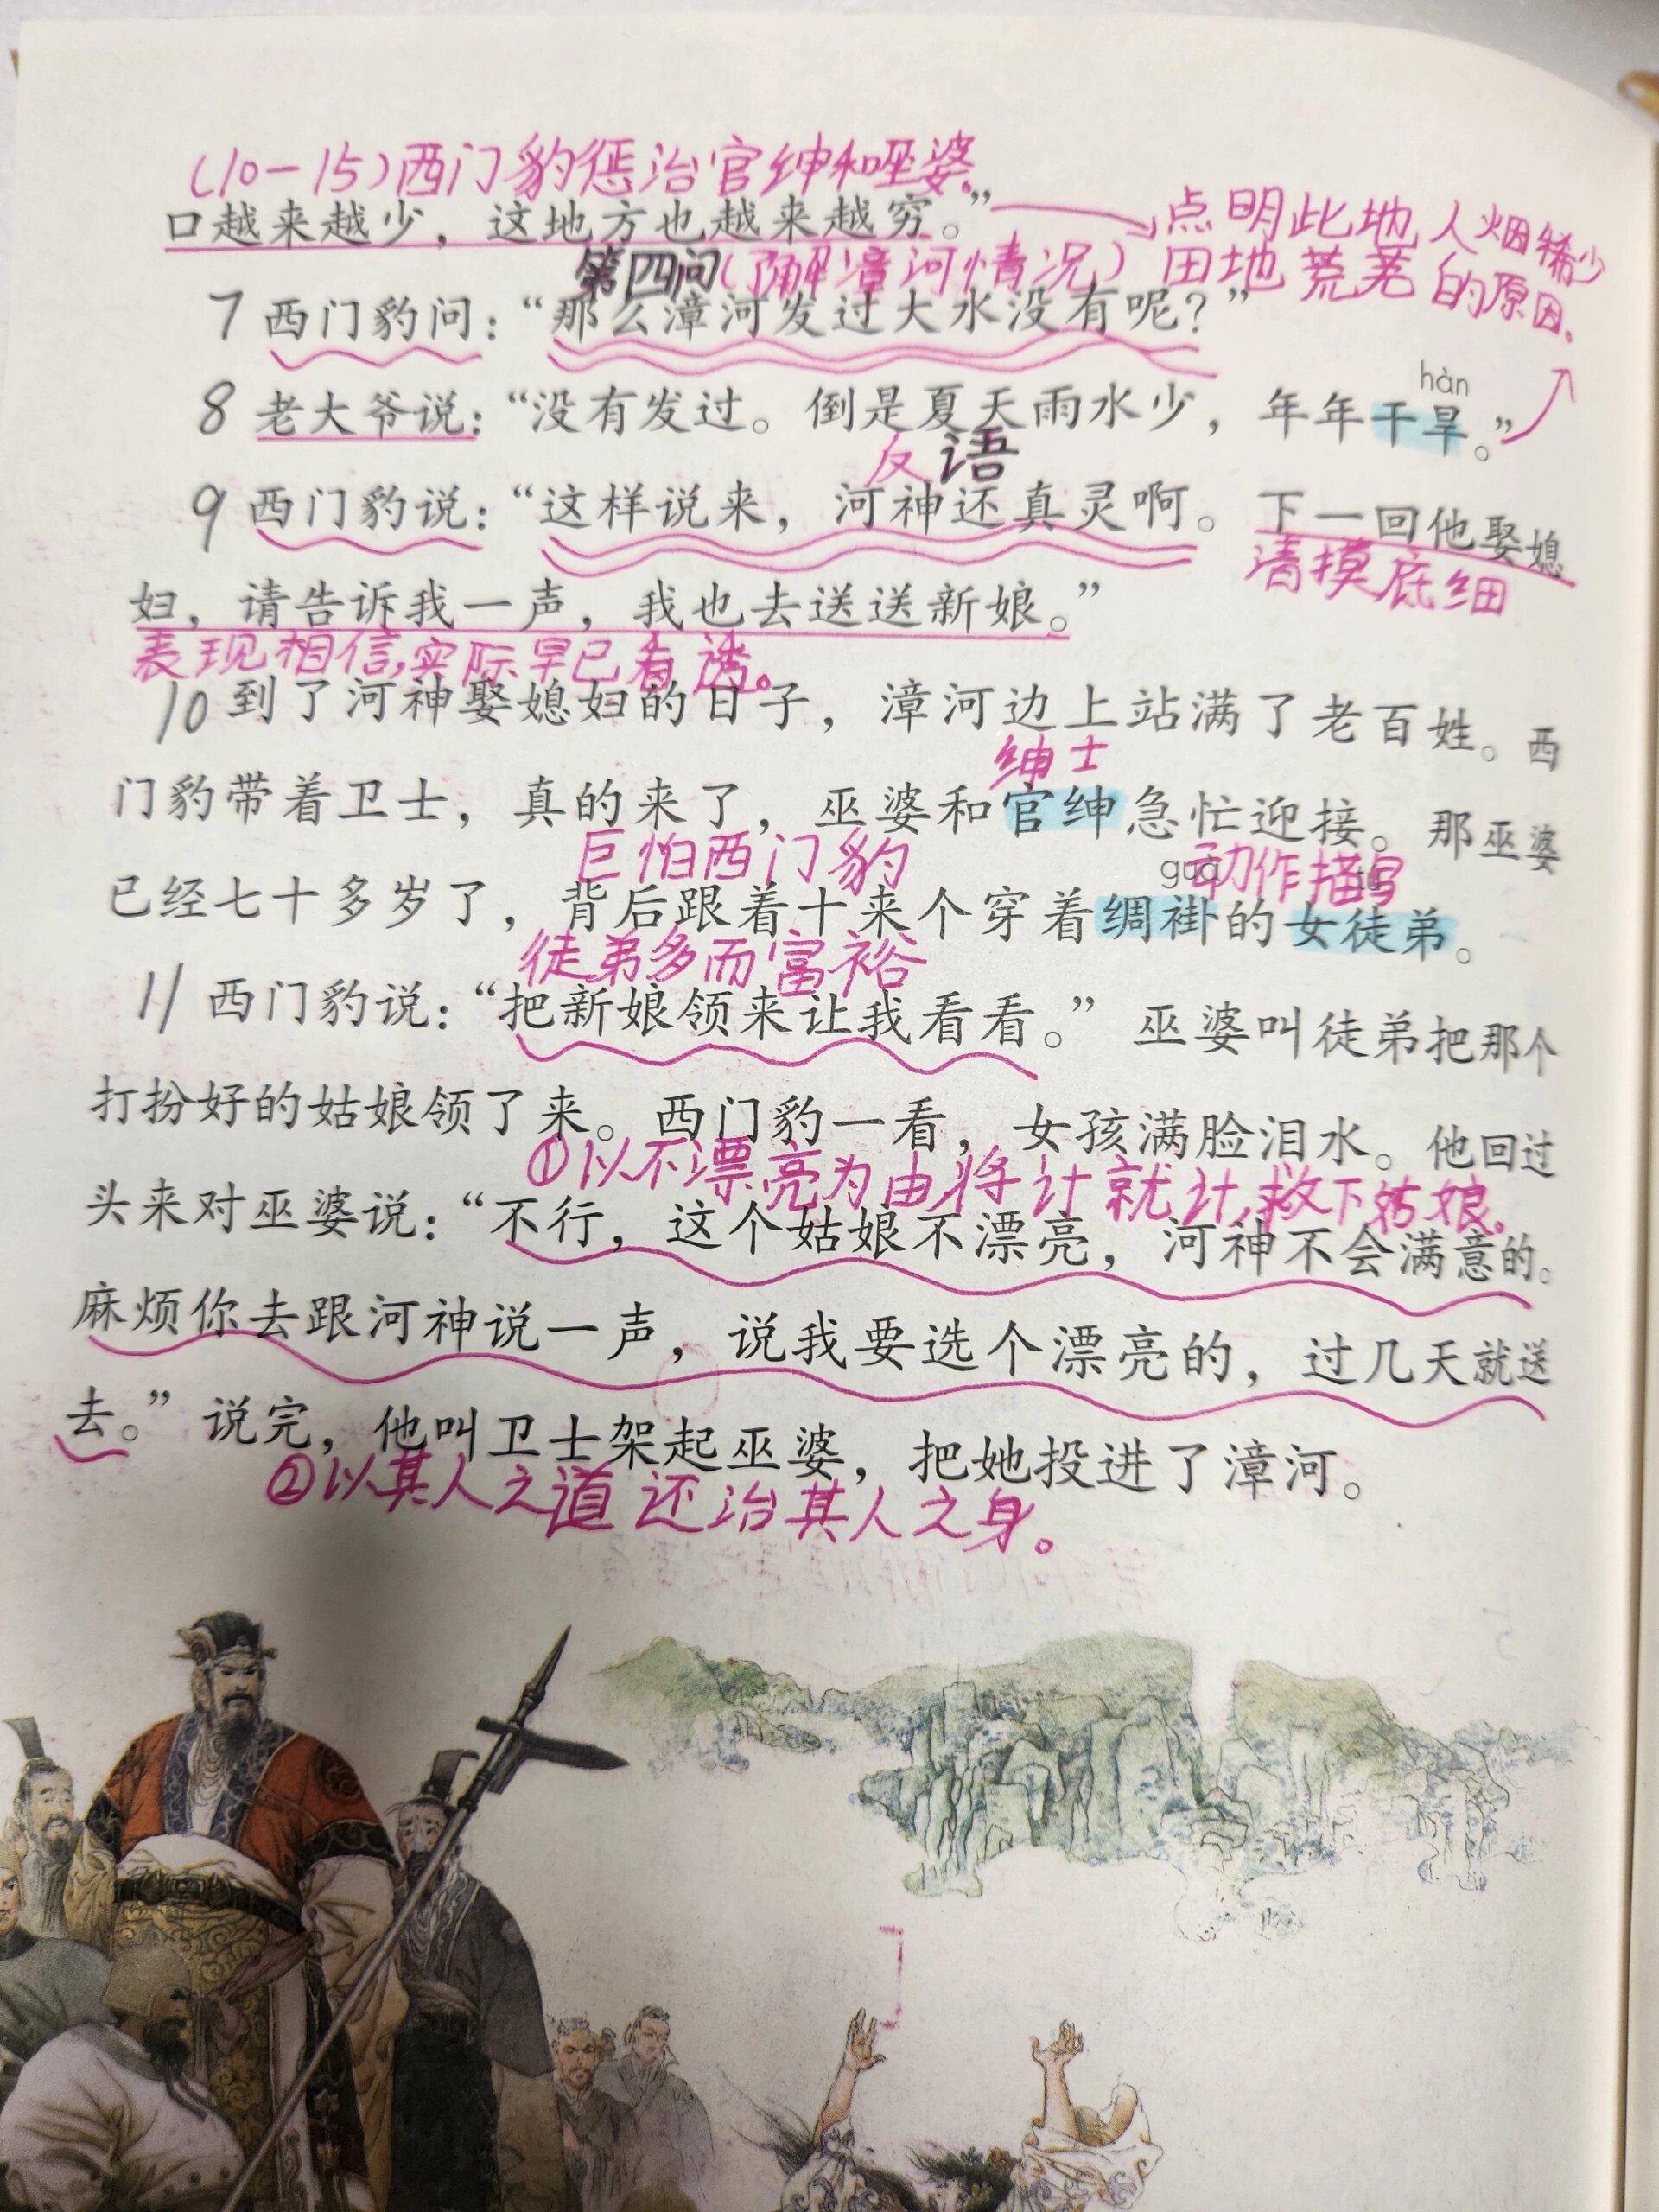 (10-15)西门豹惩治官绅和巫婆。
口越来越少，这地方也越来越穷。”
点明此地人烟稀少
田地荒芜的原因。
第四问(了解漳河情况)
7 西门豹问：“那么漳河发过大水没有呢？”
hàn
8 老大爷说：“没有发过。倒是夏天雨水少，年年干旱。”
反语
9 西门豹说：“这样说来，河神还真灵啊。下一回他娶媳
清摸底细
妇，请告诉我一声，我也去送送新娘。”
表现相信,实际早已看透。
10 到了河神娶媳妇的日子，漳河边上站满了老百姓。西
绅士
门豹带着卫士，真的来了，巫婆和官绅急忙迎接。那巫婆
巨怕西门豹
guà
动作描写
已经七十多岁了，背后跟着十来个穿着绸褂的女徒弟。
徒弟多而富裕
11 西门豹说：“把新娘领来让我看看。”巫婆叫徒弟把那个
打扮好的姑娘领了来。西门豹一看，女孩满脸泪水。他回过
①以不漂亮为由,将计就计,救下姑娘。
头来对巫婆说：“不行，这个姑娘不漂亮，河神不会满意的。
麻烦你去跟河神说一声，说我要选个漂亮的，过几天就送
去。”说完，他叫卫士架起巫婆，把她投进了漳河。
②以其人之道还治其人之身。